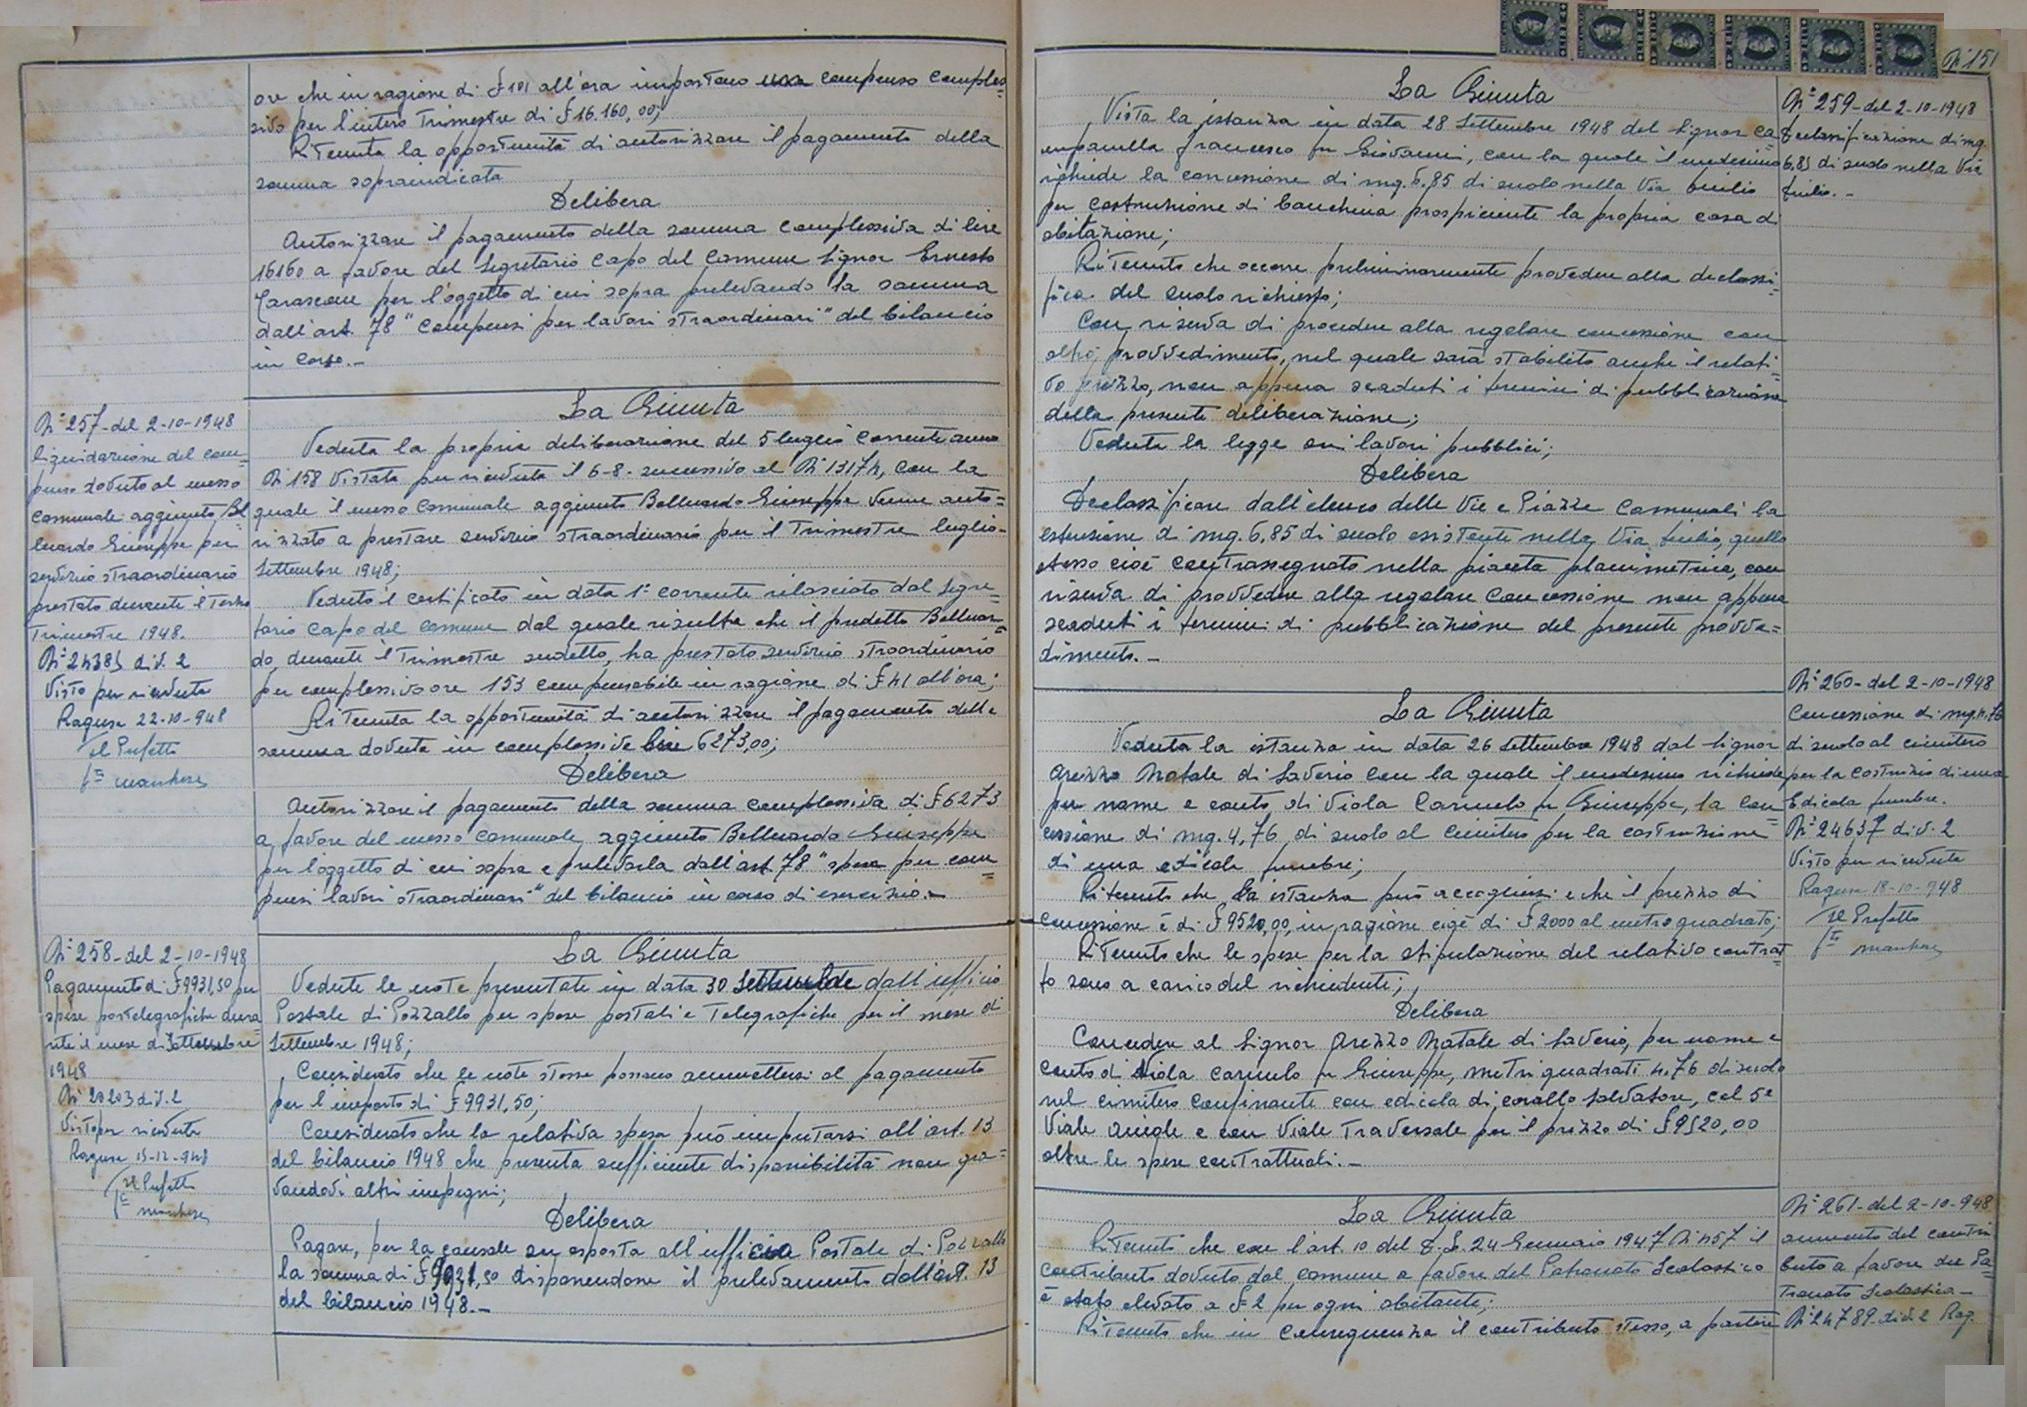 ore che in ragione di £ 101 all'ora importano una compenso comples=
sivo per l'intero Trimestre di £ 16.160,00;
Ritenuta la opportunità di autorizzare il pagamento della
somma sopraindicata
Delibera
Autorizzare il pagamento della somma complessiva di lire
16160 a favore del Segretario Capo del Comune Signor Ernesto
per l'oggetto di cui sopra prelevando la somma
dall'art. 78 "compensi per lavori straordinari" del bilancio
in corso.-
N° 257 del 2-10-1948
liquidazione del com=
penso dovuto al messo
comunale aggiunto Bel
luardo Giuseppe per
servizio straordinario
prestato durante il Terzo
Trimestre 1948.
N° 24385 div. 2
Visto per ricevuta
Ragusa 22-10-948
Il Prefetto
La Giunta
Veduta la propria deliberazione del 5 luglio corrente anno
N° 158 vistata per ricevuta il 6-8- successivo al N° 13174, con la
quale il messo comunale aggiunto Belluardo Giuseppe venne auto=
rizzato a prestare servizio straordinario per il Trimestre luglio-
Settembre 1948;
Veduto il certificato in data 1° corrente rilasciato dal Segre=
tario capo del comune dal quale risulta che il predetto Belluar=
do, durante il Trimestre suddetto, ha prestato servizio straordinario
per complessive ore 153 compensabile in ragione di £ 41 all'ora;
Ritenuta la opportunità di autorizzare il pagamento della
somma dovuta in complessive lire 6273,00;
Delibera
Autorizzare il pagamento della somma complessiva di £ 6273
a favore del messo comunale aggiunto Belluardo Giuseppe
per l'oggetto di cui sopra e prelevarla dall'art. 78 "spese per com=
pensi lavori straordinari" del bilancio in corso di esercizio.-
N° 258 - del 2-10-1948
Pagamento di £ 9931,50 per
spese postelegrafiche dura
nte il mese di Settembre
1948
N° 20203 div. 2
Visto per ricevuta
Ragusa 13-12-948
Il Prefetto
La Giunta
Vedute le note presentate in data 30 Settembre dall'ufficio
Postale di Pozzallo per spese postali e Telegrafiche per il mese di
Settembre 1948;
Considerato che le note stesse possono ammettersi al pagamento
per l'importo di £ 9931,50;
Considerato che la relativa spesa può imputarsi all'art. 13
del bilancio 1948 che presenta sufficiente disponibilità non gra=
vandovi altri impegni;
Delibera
Pagare, per la causale su esposta all'ufficio Postale di Pozzallo
la somma di £ 9931,50 disponendone il prelevamento dall'art. 13
del bilancio 1948.-
N° 151
La Giunta
Vista la istanza in data 28 Settembre 1948 del Signor Ca=
mpanella Francesco fu Giovanni, con la quale il medesimo
richiede la concessione di mq. 6,85 di suolo nella Via
per costruzione di banchina prospiciente la propria casa di
abitazione;
Ritenuto che occorre preliminarmente provvedere alla declassi=
fica del suolo richiesto;
Con riserva di procedere alla regolare concessione con
altro provvedimento, nel quale sarà stabilito anche il relati=
vo prezzo, non appena scaduti i termini di pubblicazione
della presente deliberazione;
Veduta la legge sui lavori pubblici;
Delibera
Declassificare dall'elenco delle Vie e Piazze Comunali la
estensione di mq. 6,85 di suolo esistente nella Via quello
stesso cioè contrassegnato nella pianta planimetrica, con
riserva di provvedere alla regolare concessione non appena
scaduti i termini di pubblicazione del presente provve=
dimento.-
N° 259 - del 2-10-1948
Declassificazione di mq.
6,85 di suolo nella Via
La Giunta
Veduta la istanza in data 26 Settembre 1948 dal Signor
Arezzo Natale di Saverio con la quale il medesimo richiede
per nome e conto di Viola Carmelo fu Giuseppe, la con
cessione di mq. 4,76 di suolo al cimitero per la costruzione
di una edicola funebre;
Ritenuto che la istanza può accogliersi e che il prezzo di
concessione è di £ 9520,00, in ragione cioè di £ 2000 al metro quadrato;
Ritenuto che le spese per la stipulazione del relativo contrat
to sono a carico del richiedente;
Delibera
Concedere al Signor Arezzo Natale di Saverio, per nome e
conto di Viola Carmelo fu Giuseppe, metri quadrati 4,76 di suolo
nel cimitero confinante con edicola di Corallo Salvatore, col 5°
Viale Angolo e con Viale Traversale per il prezzo di £ 9520,00
oltre le spese contrattuali.-
N° 260 - del 2-10-1948
Concessione di mq. 4.76
di suolo al cimitero
per la costruzio di una
Edicola funebre.
N° 24637 div. 2
Visto per ricevuta
Ragusa 18-10-948
Il Prefetto
La Giunta
Ritenuto che con l'art. 10 del D.L. 24 Gennaio 1947 N° 457 il
contributo dovuto dal comune a favore del Patronato Scolastico
è stato elevato a £ 2 per ogni abitante;
Ritenuto che in conseguenza il contributo stesso, a partire
N° 261 - del 2-10-948
aumento del contri
buto a favore del Pa=
tronato Scolastico -
N° 24789 div. 2 Rag.